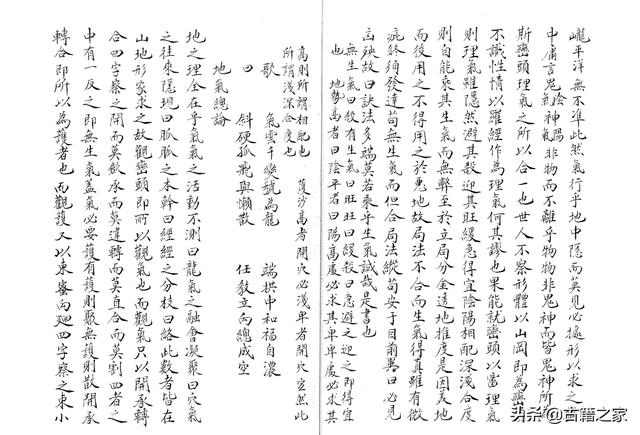 巄平洋無不準此然氣行乎地中隱而莫見必據形以求之
中庸言鬼氣陰神陽氣非物而不離乎物物非鬼神而皆鬼神所
斯巒頭理氣之所以合一也世人不察形體以山岡即為巒
不識性情以羅經作為理氣何其謬也果能就巒頭以審理氣
則理氣雖隱然避其殺迎其旺緩急得宜陰陽相配深淺合度
則自能乘其生氣而無弊至於立局分金遠地推度是因美地
而後用之不得用之於惡地故局法不合而生氣得真雖有微
疵終須發達苟無生氣而但合局法縱苟安于目前異日必見
凶殃故曰訣法多端莫若乘乎生氣誠哉是書也
無生氣曰殺有生氣曰旺旺曰緩殺曰急避之迎之即得宜
也地勢高者曰陰平者曰陽高處必求其卑卑處必求其
高則所謂相配也 護沙高者開穴必淺卑者開穴宜然此
所謂淺深合度也
歌 氣雲千變號為龍 端拱中和福自濃
曰 斜硬孤飛與懶散 任教立向總成空
地氣總論
地之理全在乎氣氣之活動不測曰龍氣之融會凝聚曰穴氣
之往來隱現曰脈脈之本幹曰經經之分枝曰絡此數者皆在
山地形家求之故觀巒頭即所以觀氣也而觀氣只以開承轉
合四字察之開而莫飲承而莫違轉而莫直合而莫割四者之
中有一反之即無生氣蓋氣必要護有護則聚無護則散開承
轉合即所以為護者也而觀護又以束密向廻四字察之束小
头条@古籍之家